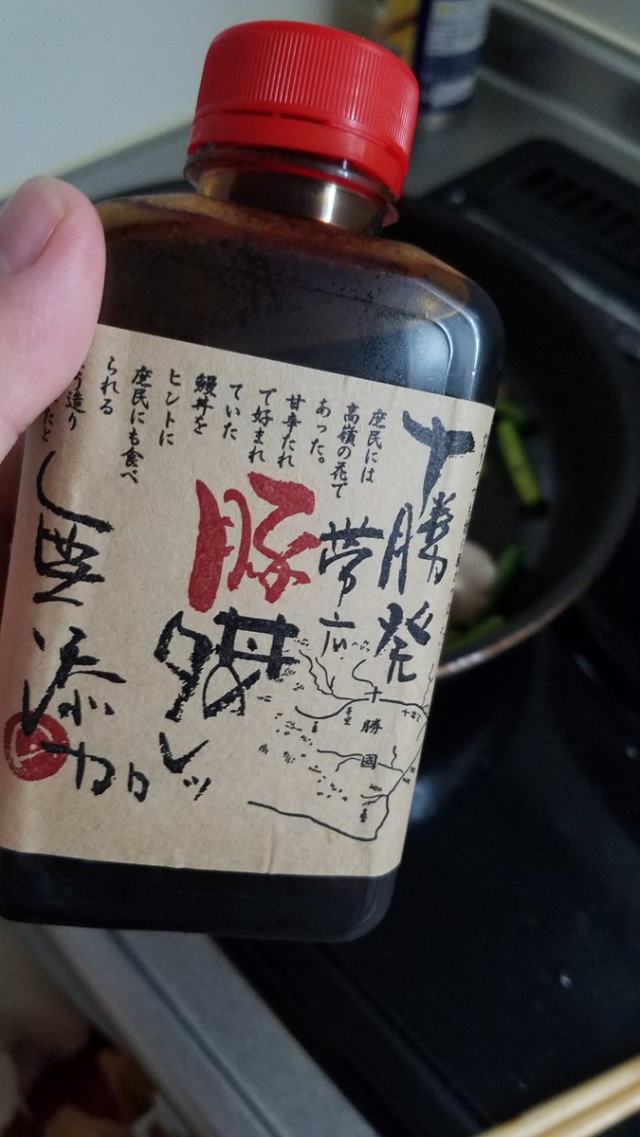 十勝発
帯広
豚丼のタレッ
庶民には
高嶺の花で
あった。
甘辛たれ
で好まれ
ていた
鰻丼を
ヒントに
庶民にも食べ
られる
う造り
たと
無添加
十勝國